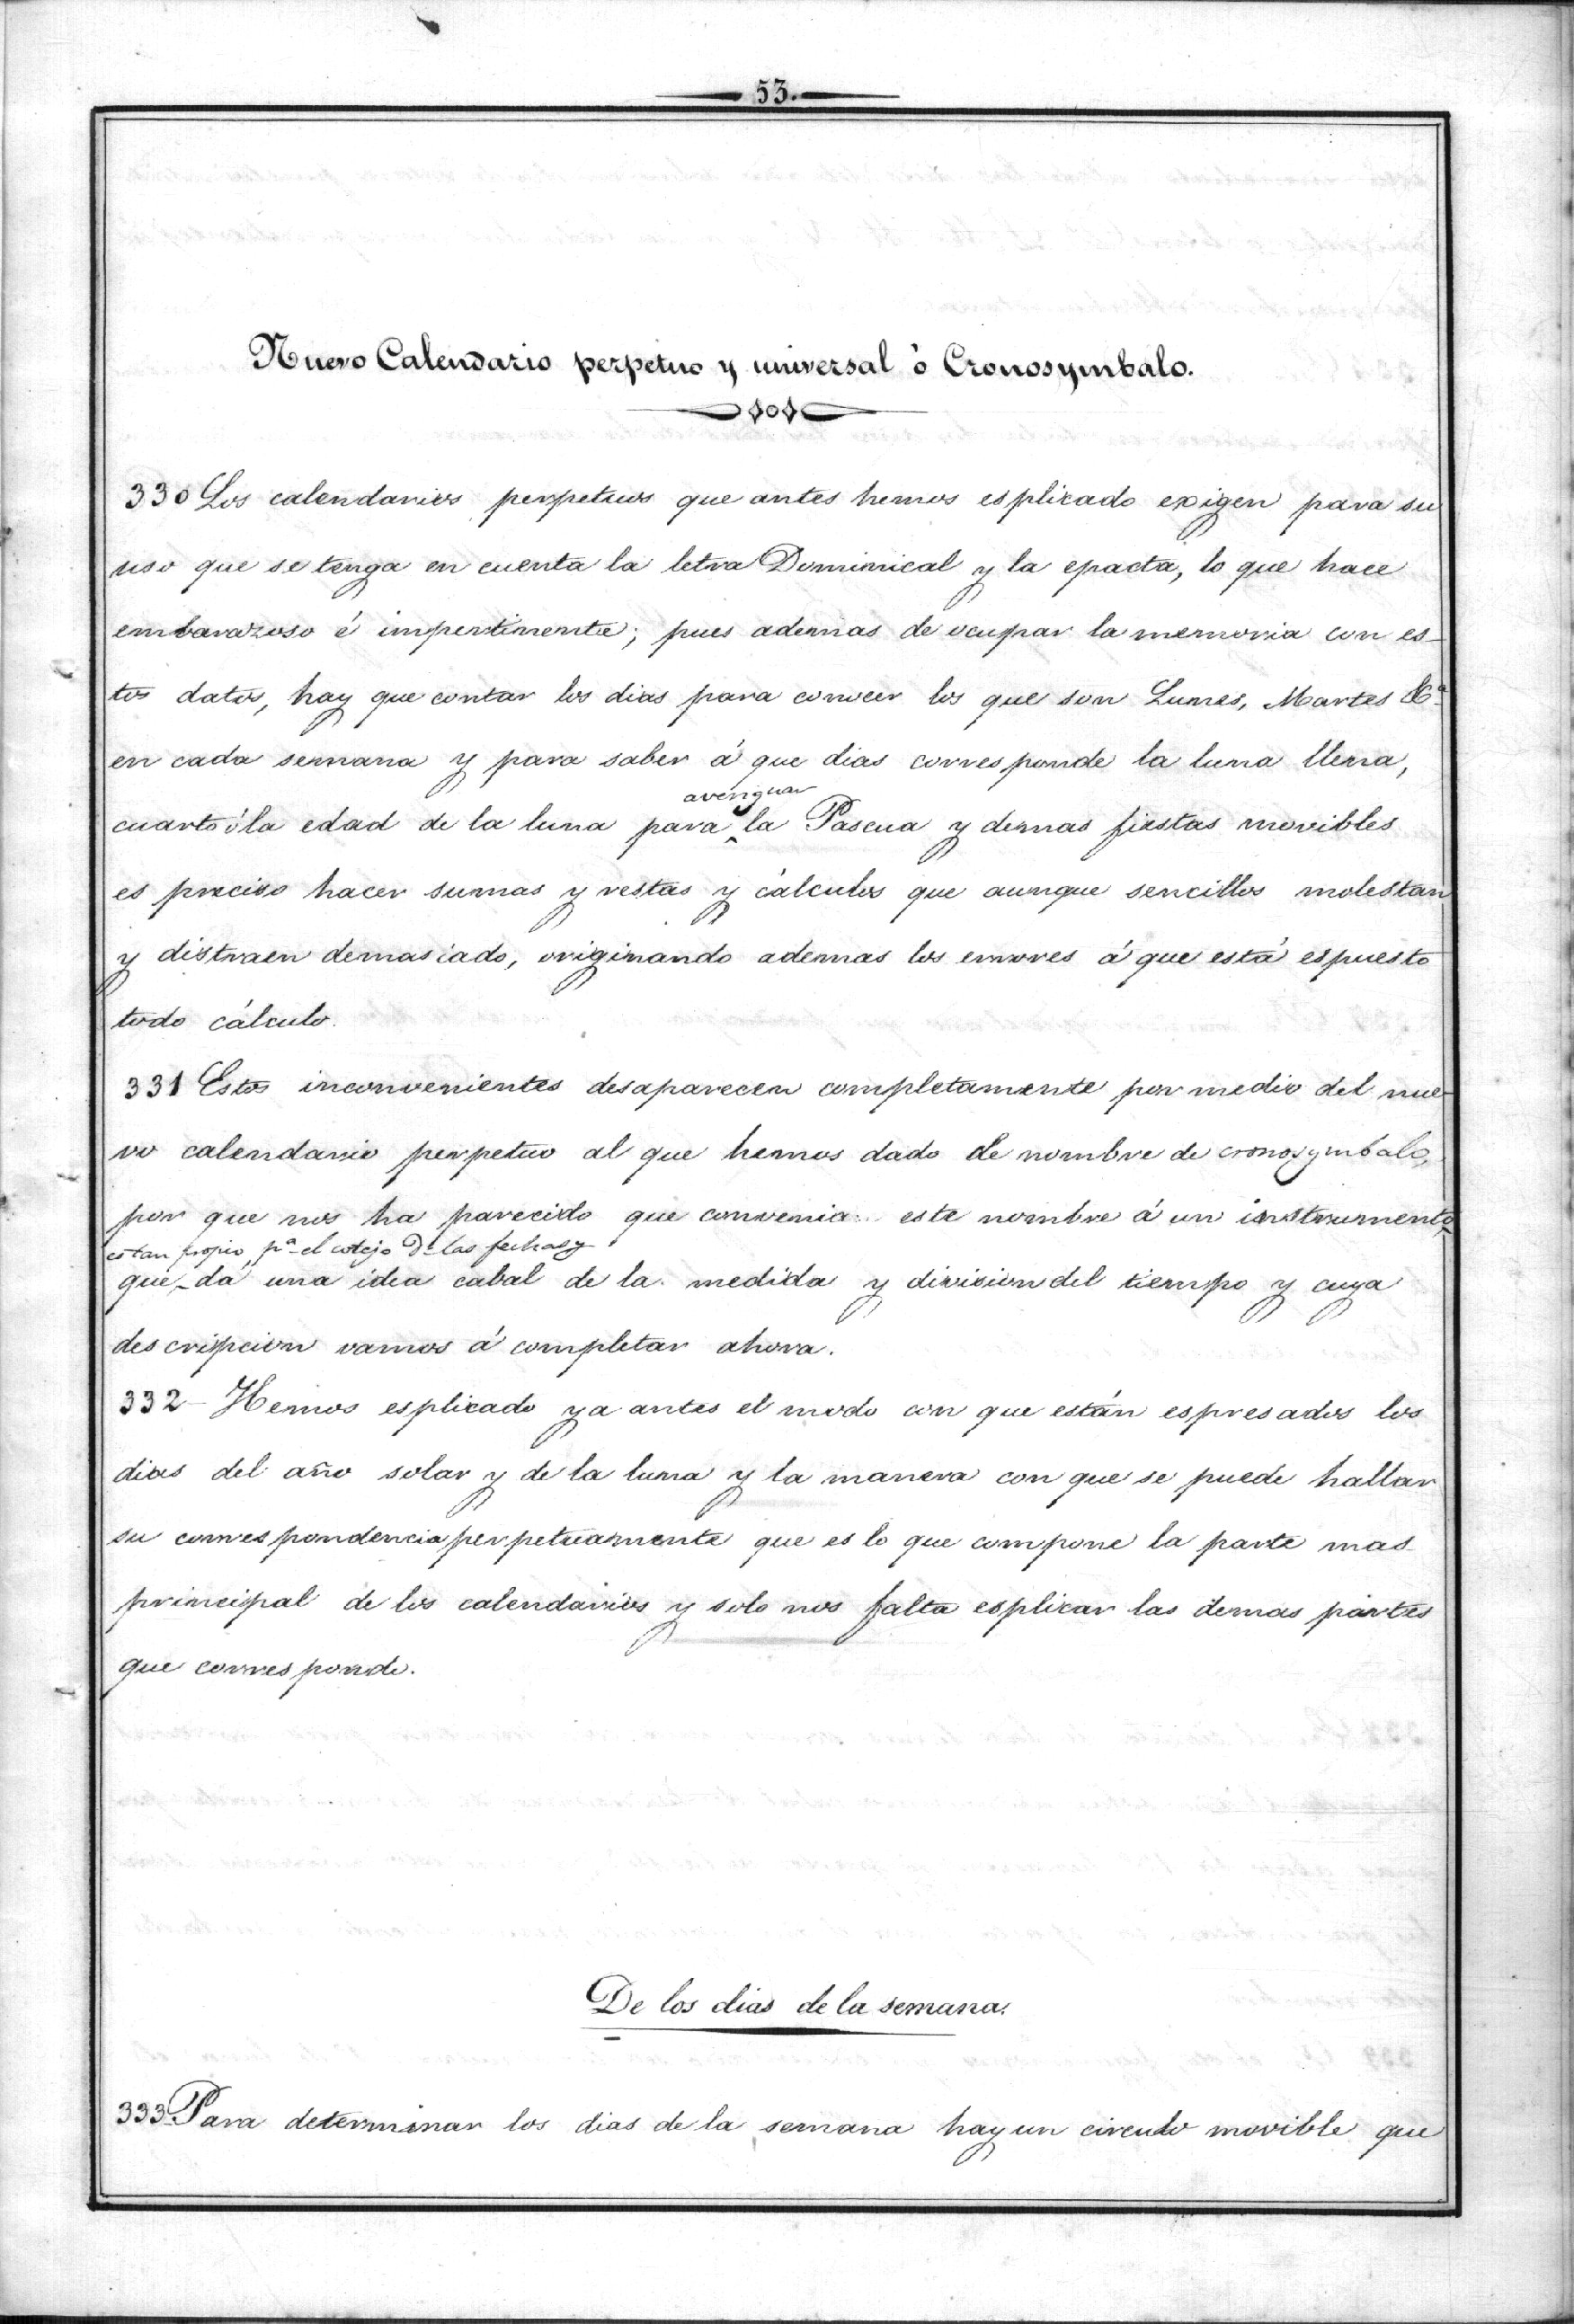 53.
Nuevo Calendario perpetuo y universal ò Cronosymbalo.
330 Los calendarios perpetuos que antes hemos esplicado exigen para su
uso que se tenga en cuenta la letra Dominical y la epacta, lo que hace
embarazoso é impertinente; pues ademas de ocupar la memoria con es-
tos datos, hay que contar los dias para conocer los que son Lunes, Martes &ª
en cada semana y para saber á que dias corresponde la luna llena,
averiguar
cuarto ó la edad de la luna para la Pascua y demas fiestas movibles
es preciso hacer sumas y restas y cálculos que aunque sencillos molestan
y distraen demasiado, originando ademas los errores á que está espuesto
todo cálculo.
331 Estos inconvenientes desaparecen completamente por medio del nue-
vo calendario perpetuo al que hemos dado el nombre de cronosymbalo,
por que nos ha parecido que convenia este nombre á un instrumento
es tan propio pª el cotejo de las fechas y
que dá una idea cabal de la medida y division del tiempo y cuya
descripcion vamos á completar ahora.
332 - Hemos esplicado ya antes el modo con que están espresados los
dias del año solar y de la luna y la manera con que se puede hallar
su correspondencia perpetuamente que es lo que compone la parte mas
principal de los calendarios y solo nos falta esplicar las demas partes
que corresponde.
De los dias de la semana.
333 Para determinar los dias de la semana hay un circulo movible que